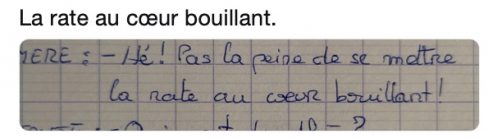 La rate au cœur bouillant.
MERE : - Hé ! Pas la peine de se mettre
la rate au cœur bouillant !